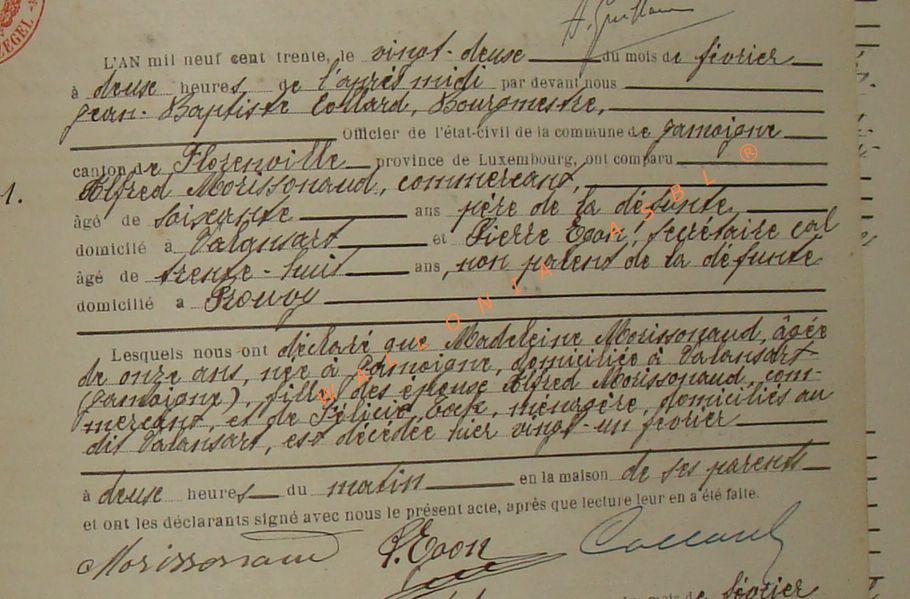 ZEGEL
A. Guillaume
L'AN mil neuf cent trente, le vingt-deuse du mois de février
à deuse heures de l'après midi par devant nous
Jean-Baptiste Collard, Bourgmestre,
Officier de l'état-civil de la commune de Jamoigne
canton de Florenville province de Luxembourg, ont comparu
1. Alfred Morissonaud, commerçant,
âgé de soixante ans père de la défunte
domicilié à Valansart et Pierre Evon, secrétaire col
âgé de trente-huit ans, non parent de la défunte
domicilié à Prouvy
Lesquels nous ont déclaré que Madeleine Morissonaud, âgée
de onze ans, née à Jamoigne, domiciliée à Valansart
(Jamoigne), fille des épeuse Alfred Morissonaud, com-
merçant, et de Félicie, ménagère, domiciliés au
dit Valansart, est décédée hier vingt-un février
à deuse heures du matin en la maison de ses parents
et ont les déclarants signé avec nous le présent acte, après que lecture leur en a été faite.
Morissonaud P. Evon Collard
février
WALLONIA ASBL ®